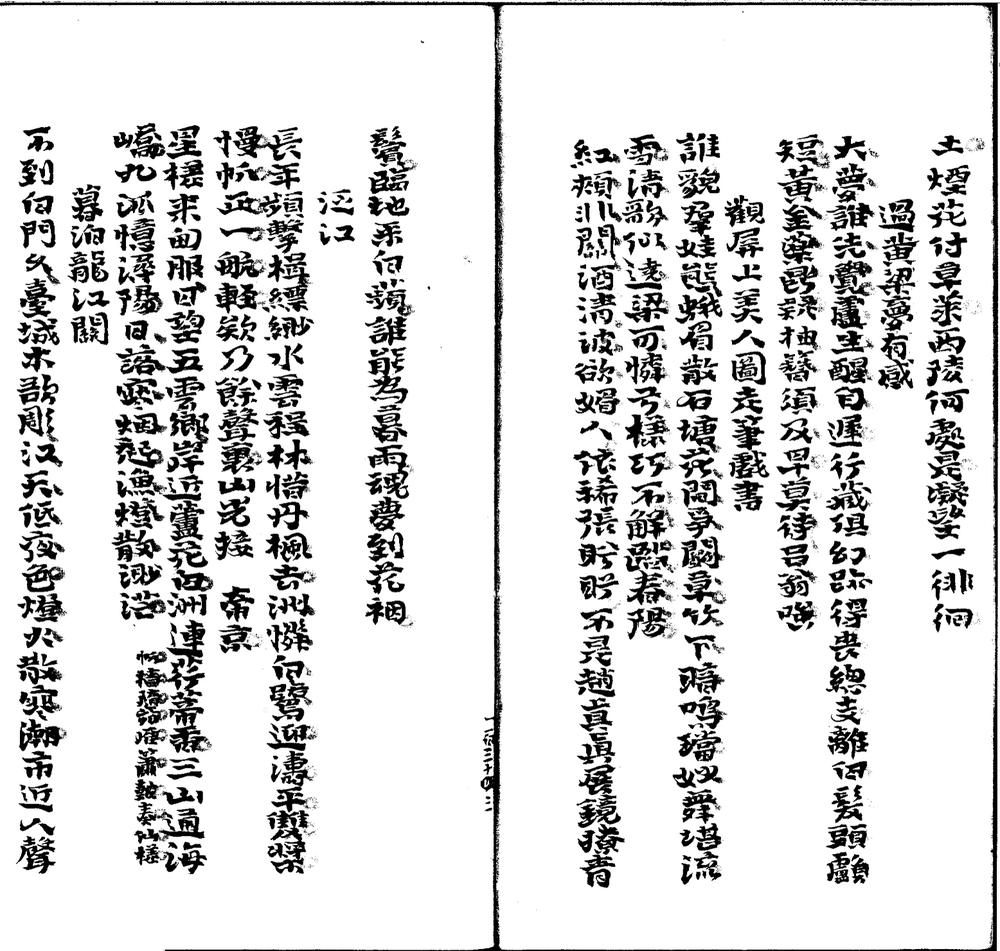 土煙花付草萊西陵何處是凝望一徘徊
過黄粱夢有感
大夢誰先覺盧生醒自遲行藏俱幻跡得喪總支離白髮頭顱
短黄金藥餌誤抽簪須及早莫待呂翁嗤
觀屏上美人圖走筆戲書
誰貌羣娃態蛾眉散石塘花間爭鬬草竹下暗鳴璫妙舞堪流
雪清歌似遶梁可憐兮樣巧不解踏春陽
紅頰非關酒清波欲媚人依稀張盼盼不是趙真真展鏡撩青
鬢臨池采白蘋誰能為暮雨魂夢到花裀
泛江
長年頻擊楫縹緲水雲程林惜丹楓去洲憐白鷺迎濤平雙槳
慢帆正一航輕欸乃餘聲裏山光接 帝京
星槎来甸服日望五雲鄉岸近蘆花白洲連荇帶青三山通海
嶠九派憶潯陽日落寒烟起漁燈散渺茫
暮泊龍江關
不到白門久臺城木欲彫江天低夜色燈火散寒潮市近人聲